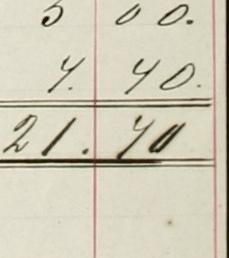 5 00.
4. 40.
21. 40